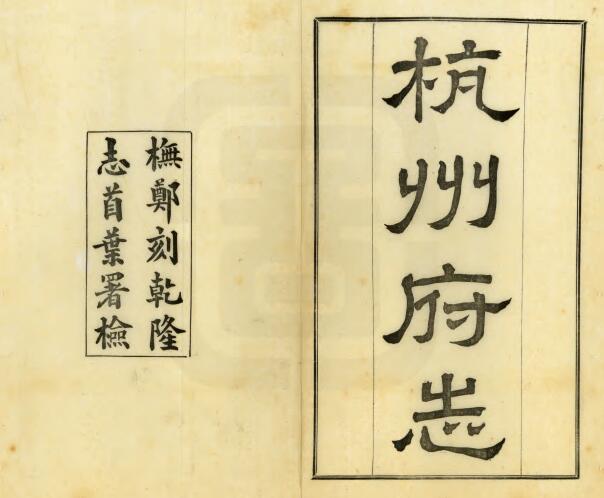 杭州府志
橅鄭刻乾隆
志首葉署檢